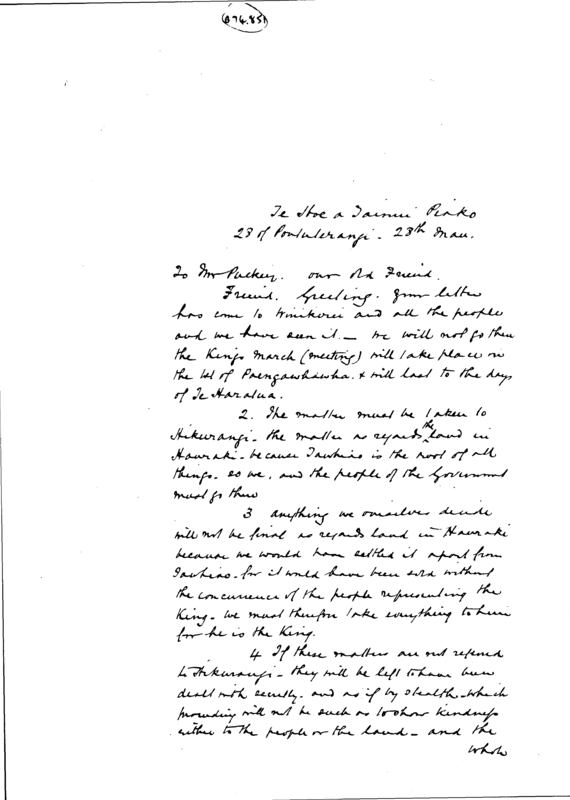 (874.85)
Te Hoe a Tainui Piako
28 of Poututerangi - 28th Mar.
To Mr Puckey. our old Friend.
Friend. Greeting. Your letter
has come to Winikerei and all the people
and we have seen it - we will not go then
the Kings March (meeting) will take place on
the 1st of Paengawhawha. & will last to the days
of Te Haratua.
2. The matter must be taken to
Hikurangi - the matter as regards the land in
Hauraki - because Tawhiao is the root of all
things. so we, and the people of the Government
must go there
3 anything we ourselves decide
will not be final as regards land in Hauraki
because we would have settled it apart from
Tawhiao - for it would have been sold without
the concurrence of the people representing the
King - we must therefore take everything to him
for he is the King.
4 If these matters are not referred
to Hikurangi - they will be left to have been
dealt with secretly - and as if by stealth - which
proceeding will not be such as to show kindness
either to the people or the land - and the
whole